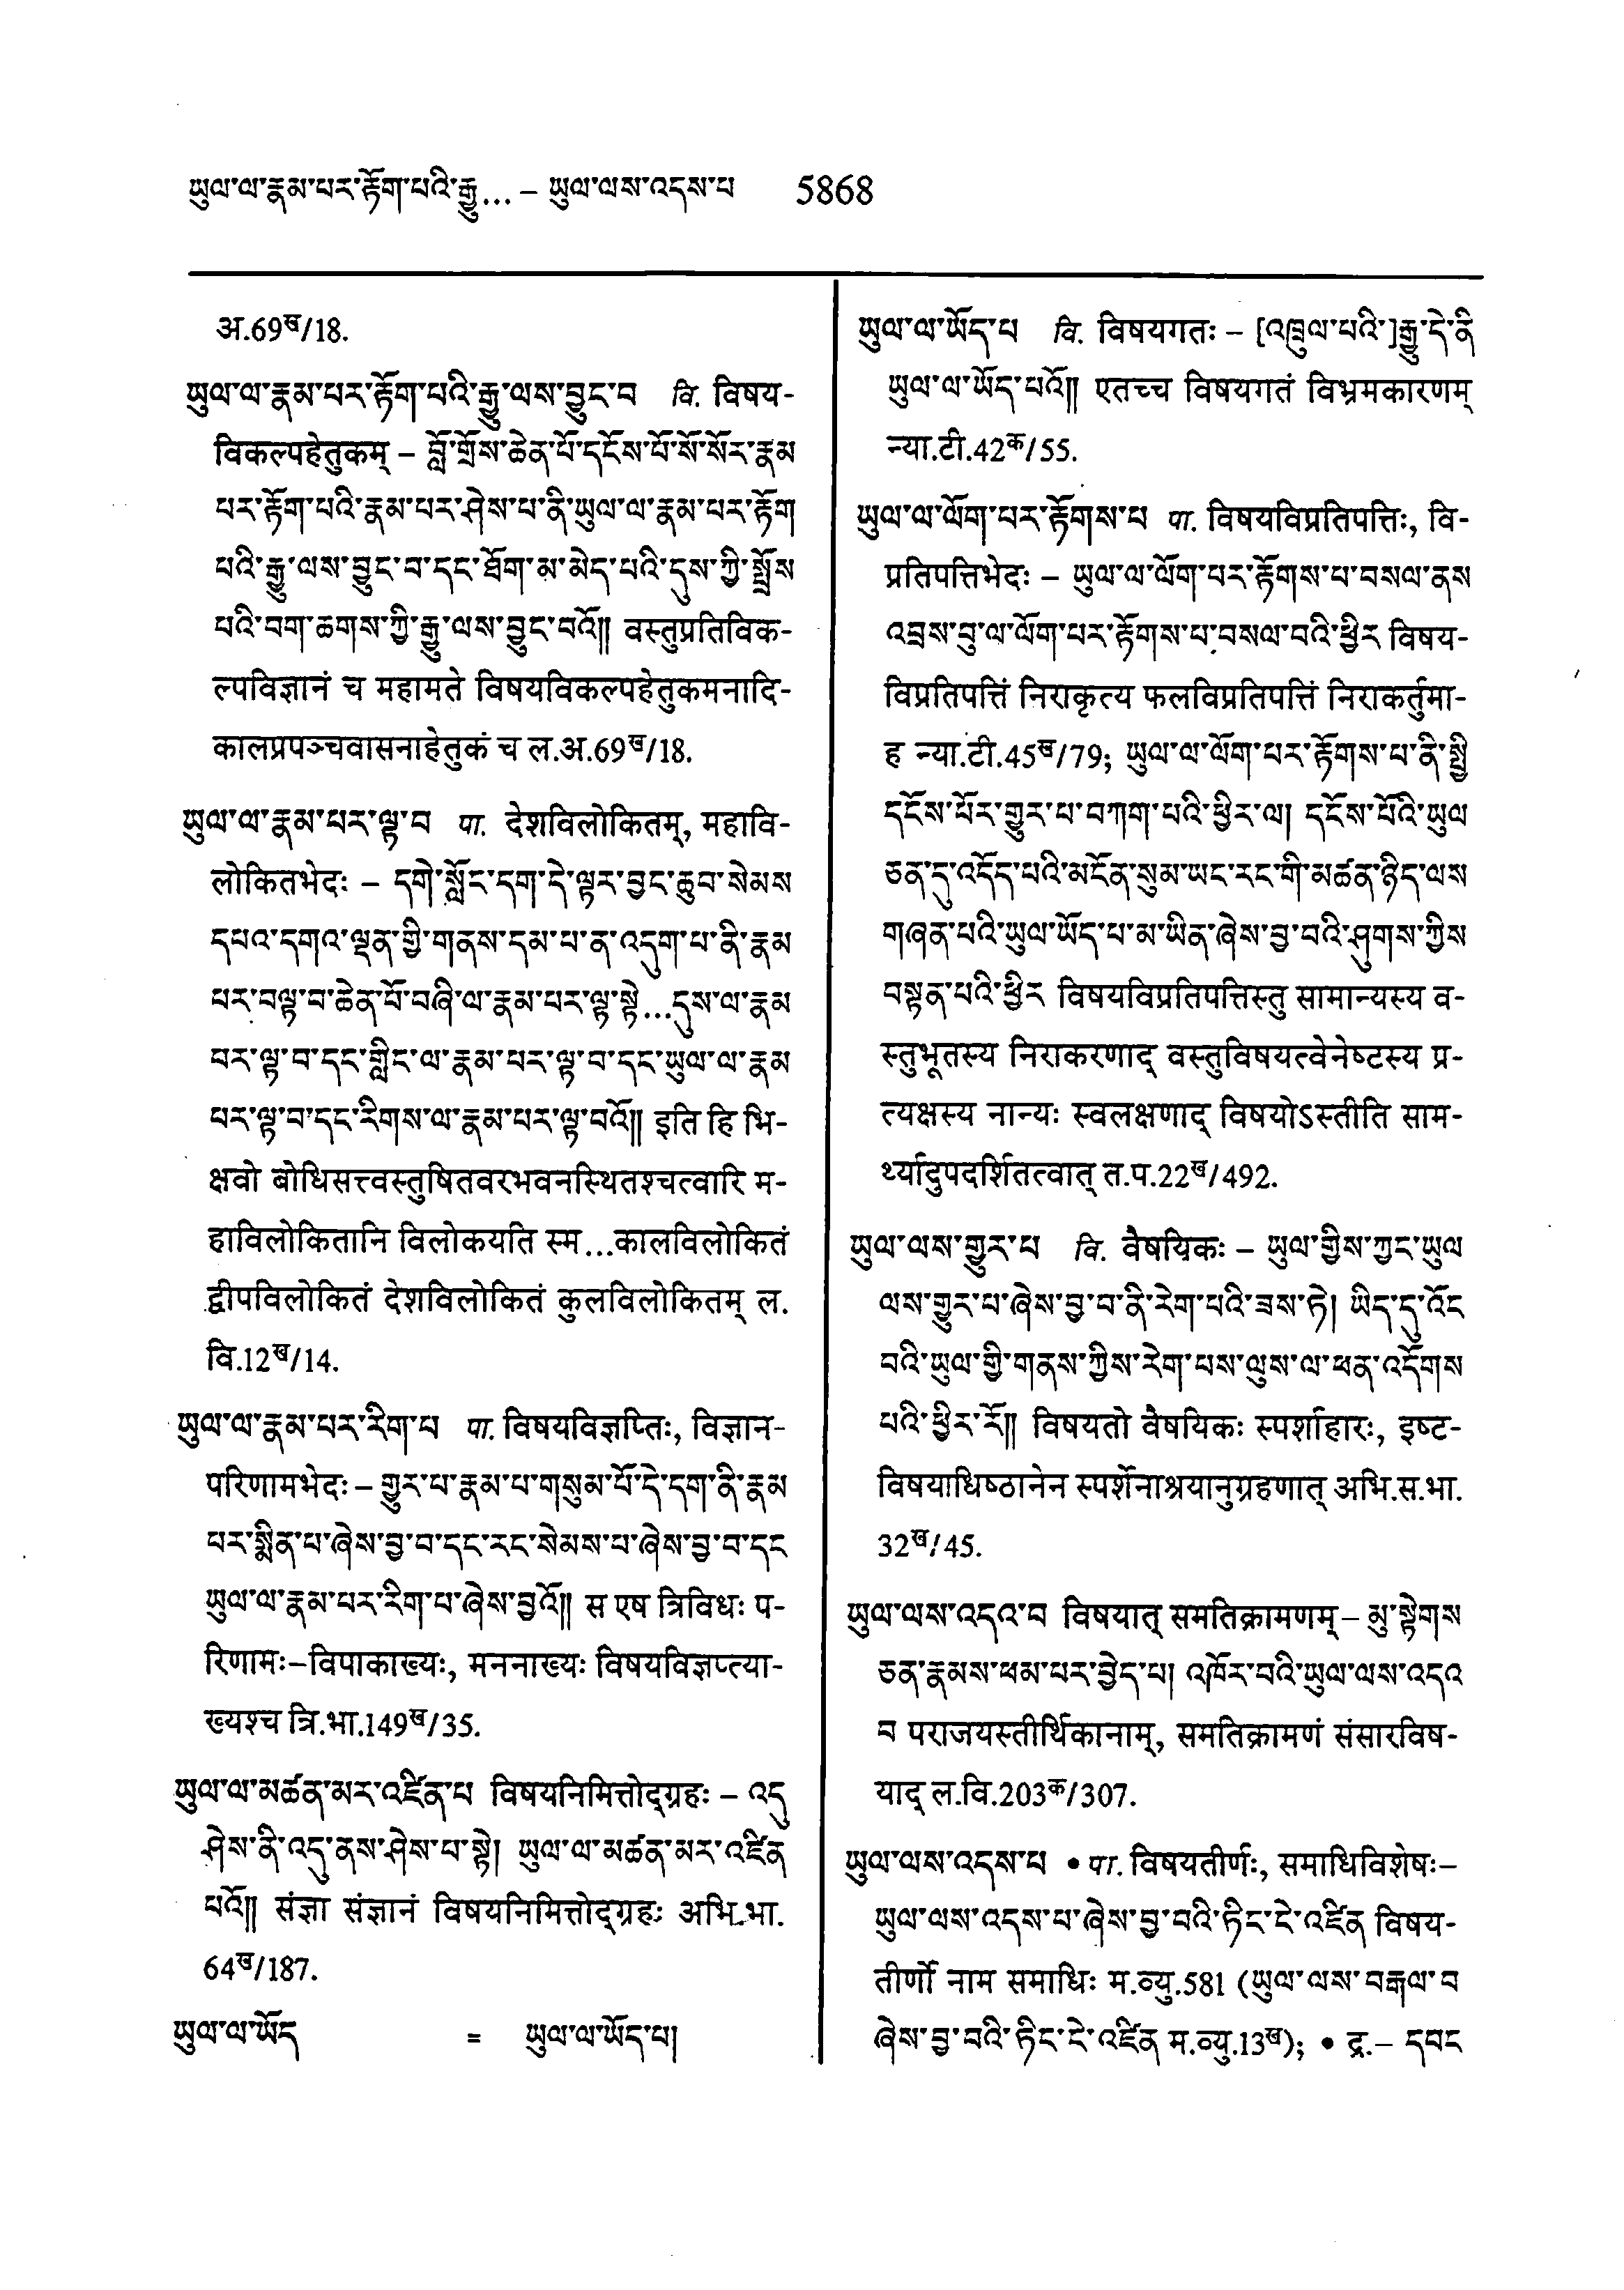 ཡུལ་ལ་རྣམ་པར་རྟོག་པའི་རྒྱུ... – ཡུལ་ལས་འདས་པ 5868
अ.69ख/18.
ཡུལ་ལ་རྣམ་པར་རྟོག་པའི་རྒྱུ་ལས་བྱུང་བ वि. विषय-
विकल्पहेतुकम् – བློ་གྲོས་ཆེན་པོ་དངོས་པོ་སོ་སོར་རྣམ
པར་རྟོག་པའི་རྣམ་པར་ཤེས་པ་ནི་ཡུལ་ལ་རྣམ་པར་རྟོག
པའི་རྒྱུ་ལས་བྱུང་བ་དང་ཐོག་མ་མེད་པའི་དུས་ཀྱི་སྤྲོས
པའི་བག་ཆགས་ཀྱི་རྒྱུ་ལས་བྱུང་བའོ།། वस्तुप्रतिविक-
ल्पविज्ञानं च महामते विषयविकल्पहेतुकमनादि-
कालप्रपञ्चवासनाहेतुकं च ल.अ.69ख/18.
ཡུལ་ལ་རྣམ་པར་ལྟ་བ पा. देशविलोकितम्, महावि-
लोकितभेदः – དགེ་སློང་དག་དེ་ལྟར་བྱང་ཆུབ་སེམས
དཔའ་དགའ་ལྡན་གྱི་གནས་དམ་པ་ན་འདུག་པ་ནི་རྣམ
པར་བལྟ་བ་ཆེན་པོ་བཞི་ལ་རྣམ་པར་ལྟ་སྟེ...དུས་ལ་རྣམ
པར་ལྟ་བ་དང་གླིང་ལ་རྣམ་པར་ལྟ་བ་དང་ཡུལ་ལ་རྣམ
པར་ལྟ་བ་དང་རིགས་ལ་རྣམ་པར་ལྟ་བའོ།། इति हि भि-
क्षवो बोधिसत्त्वस्तुषितवरभवनस्थितश्चत्वारि म-
हाविलोकितानि विलोकयति स्म...कालविलोकितं
द्वीपविलोकितं देशविलोकितं कुलविलोकितम् ल.
वि.12ख/14.
ཡུལ་ལ་རྣམ་པར་རིག་པ पा. विषयविज्ञप्तिः, विज्ञान-
परिणामभेदः – གྱུར་པ་རྣམ་པ་གསུམ་པོ་དེ་དག་ནི་རྣམ
པར་སྨིན་པ་ཞེས་བྱ་བ་དང་རང་སེམས་པ་ཞེས་བྱ་བ་དང
ཡུལ་ལ་རྣམ་པར་རིག་པ་ཞེས་བྱའོ།། स एष त्रिविधः प-
रिणामः–विपाकाख्यः, मननाख्यः विषयविज्ञप्त्या-
ख्यश्च त्रि.भा.149ख/35.
ཡུལ་ལ་མཚན་མར་འཛིན་པ विषयनिमित्तोद्ग्रहः – འདུ
ཤེས་ནི་འདུ་ནས་ཤེས་པ་སྟེ། ཡུལ་ལ་མཚན་མར་འཛིན
པའོ།། संज्ञा संज्ञानं विषयनिमित्तोद्ग्रहः अभि.भा.
64ख/187.
ཡུལ་ལ་ཡོད = ཡུལ་ལ་ཡོད་པ།
ཡུལ་ལ་ཡོད་པ वि. विषयगतः – [འཁྲུལ་པའི་]རྒྱུ་དེ་ནི
ཡུལ་ལ་ཡོད་པའོ།། एतच्च विषयगतं विभ्रमकारणम्
न्या.टी.42क/55.
ཡུལ་ལ་ལོག་པར་རྟོགས་པ पा. विषयविप्रतिपत्तिः, वि-
प्रतिपत्तिभेदः – ཡུལ་ལ་ལོག་པར་རྟོགས་པ་བསལ་ནས
འབྲས་བུ་ལ་ལོག་པར་རྟོགས་པ་བསལ་བའི་ཕྱིར विषय-
विप्रतिपत्तिं निराकृत्य फलविप्रतिपत्तिं निराकर्तुमा-
ह न्या.टी.45ख/79; ཡུལ་ལ་ལོག་པར་རྟོགས་པ་ནི་སྤྱི
དངོས་པོར་གྱུར་པ་བཀག་པའི་ཕྱིར་ལ། དངོས་པོའི་ཡུལ
ཅན་དུ་འདོད་པའི་མངོན་སུམ་ཡང་རང་གི་མཚན་ཉིད་ལས
གཞན་པའི་ཡུལ་ཡོད་པ་མ་ཡིན་ཞེས་བྱ་བའི་ཤུགས་ཀྱིས
བསྟན་པའི་ཕྱིར विषयविप्रतिपत्तिस्तु सामान्यस्य व-
स्तुभूतस्य निराकरणाद् वस्तुविषयत्वेनेष्टस्य प्र-
त्यक्षस्य नान्यः स्वलक्षणाद् विषयोऽस्तीति साम-
र्थ्यादुपदर्शितत्वात् त.प.22ख/492.
ཡུལ་ལས་གྱུར་པ वि. वैषयिकः – ཡུལ་གྱིས་ཀྱང་ཡུལ
ལས་གྱུར་པ་ཞེས་བྱ་བ་ནི་རེག་པའི་ཟས་ཏེ། ཡིད་དུ་འོང
བའི་ཡུལ་གྱི་གནས་ཀྱིས་རེག་པས་ལུས་ལ་ཕན་འདོགས
པའི་ཕྱིར་རོ།། विषयतो वैषयिकः स्पर्शाहारः, इष्ट-
विषयाधिष्ठानेन स्पर्शेनाश्रयानुग्रहणात् अभि.स.भा.
32ख/45.
ཡུལ་ལས་འདའ་བ विषयात् समतिक्रामणम् – མུ་སྟེགས
ཅན་རྣམས་ཕམ་པར་བྱེད་པ། འཁོར་བའི་ཡུལ་ལས་འདའ
བ पराजयस्तीर्थिकानाम्, समतिक्रामणं संसारविष-
याद् ल.वि.203क/307.
ཡུལ་ལས་འདས་པ • पा. विषयतीर्णः, समाधिविशेषः–
ཡུལ་ལས་འདས་པ་ཞེས་བྱ་བའི་ཏིང་ངེ་འཛིན विषय-
तीर्णो नाम समाधिः म.व्यु.581 (ཡུལ་ལས་བརྒལ་བ
ཞེས་བྱ་བའི་ཏིང་ངེ་འཛིན म.व्यु.13ख); • द्र.– དབང